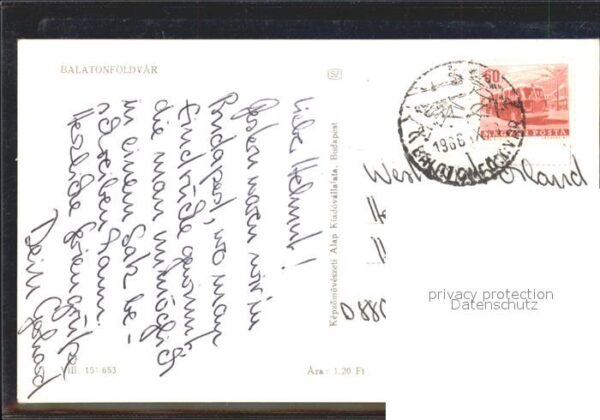 BALATONFÖLDVÁR
SZ
Liebe Helmut!
Gestern waren wir in
Budapest, wo man
Eindrücke gewinnt
die man unmöglich
in einem Satz be-
schreiben kann.
Herzliche Feriengrüße
Dein Gerhard
Képzőművészeti Alap Kiadóvállalata, Budapest
VIII. 15 653
Ára: 1.20 Ft
60
MAGYAR POSTA
1966
BALATONFÖLDVÁR
West
land
D 880
privacy protection
Datenschutz